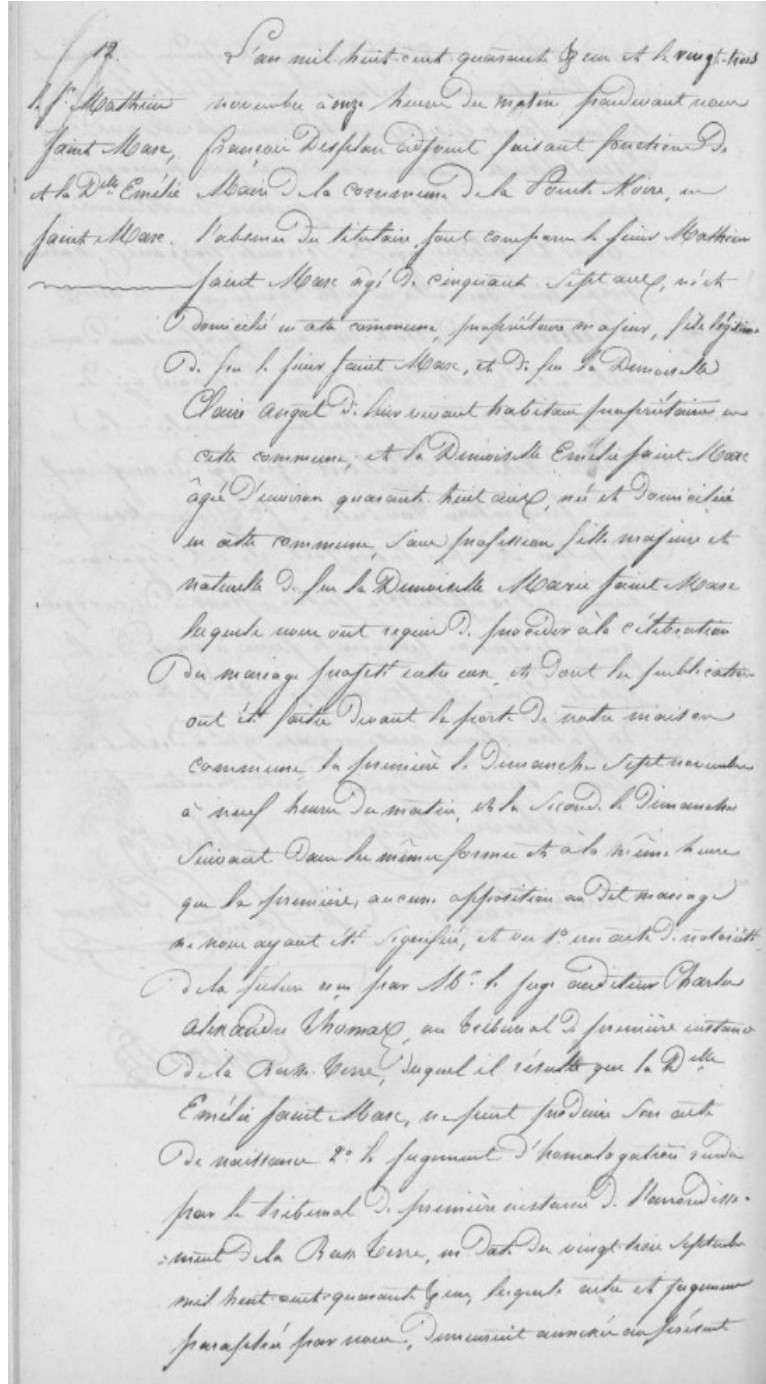 12.
Le Sr Mathieu
Saint Marc,
et la Dlle Emélie
Saint Marc.
L'an mil huit cent quarante & un et le vingt-trois
novembre à onze heures du matin pardevant nous
françois Desplan adjoint faisant fonctions de
Maire de la commune de la Pointe Noire, en
l'absence du titulaire, sont comparus le sieur Mathieu
Saint Marc âgé de cinquante sept ans, né et
Domicilié en cette commune, propriétaire majeur, fils légitime
De feu le sieur Saint Marc, et de feu la Demoiselle
Claire de leur vivant habitans propriétaires en
cette commune; et la Demoiselle Emélie Saint Marc
âgée d'environ quarante huit ans, née et Domiciliée
en cette commune, sans profession fille majeure et
naturelle de feu la Demoiselle Marie Saint Marc
lesquels nous ont requis de procéder à la célébration
Du mariage projeté entre eux, et dont les publications
ont été faites devant la porte de notre maison
commune, la première le Dimanche sept novembre
à neuf heures du matin, et la seconde le Dimanche
suivant dans les mêmes formes et à la même heure
que la première, aucune opposition au dit mariage
ne nous ayant été signifiée, et vu 1o un acte de notoriété
De la future reçu par Mr le juge auditeur Charles
Alexandre Thomas, au tribunal de première instance
De la Basse-Terre, duquel il résulte que la Dlle
Emélie Saint Marc, ne peut produire son acte
De naissance 2o le jugement d'homologation rendu
par le tribunal de première instance de l'arrondisse-
=ment de la Basse Terre, en date du vingt trois septembre
mil huit-cent-quarante & un, lesquels acte et jugement
paraphés par nous, demeurent annexés au présent